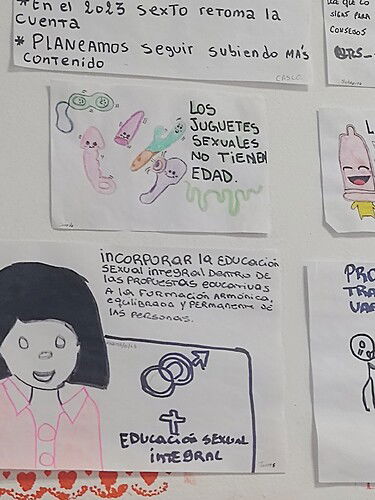 *En el 2023 sexto retoma la
cuenta
* PLANEAMOS seguir subiendo más
contenido
CASCO
CONSEJOS
LOS
JUGUETES
SEXUALES
NO TIENEN
EDAD.
INCORPORAR la EDUCACIÓN
SEXUAL INTEGRAL DENTRO DE
LAS PROPUESTAS EDUCATIVAS
A LA FORMACIÓN ARMÓNICA,
EQUILIBRADA Y PERMANENTE DE
LAS PERSONAS.
EDUCACIÓN SEXUAL
INTEGRAL
PRO
TRA